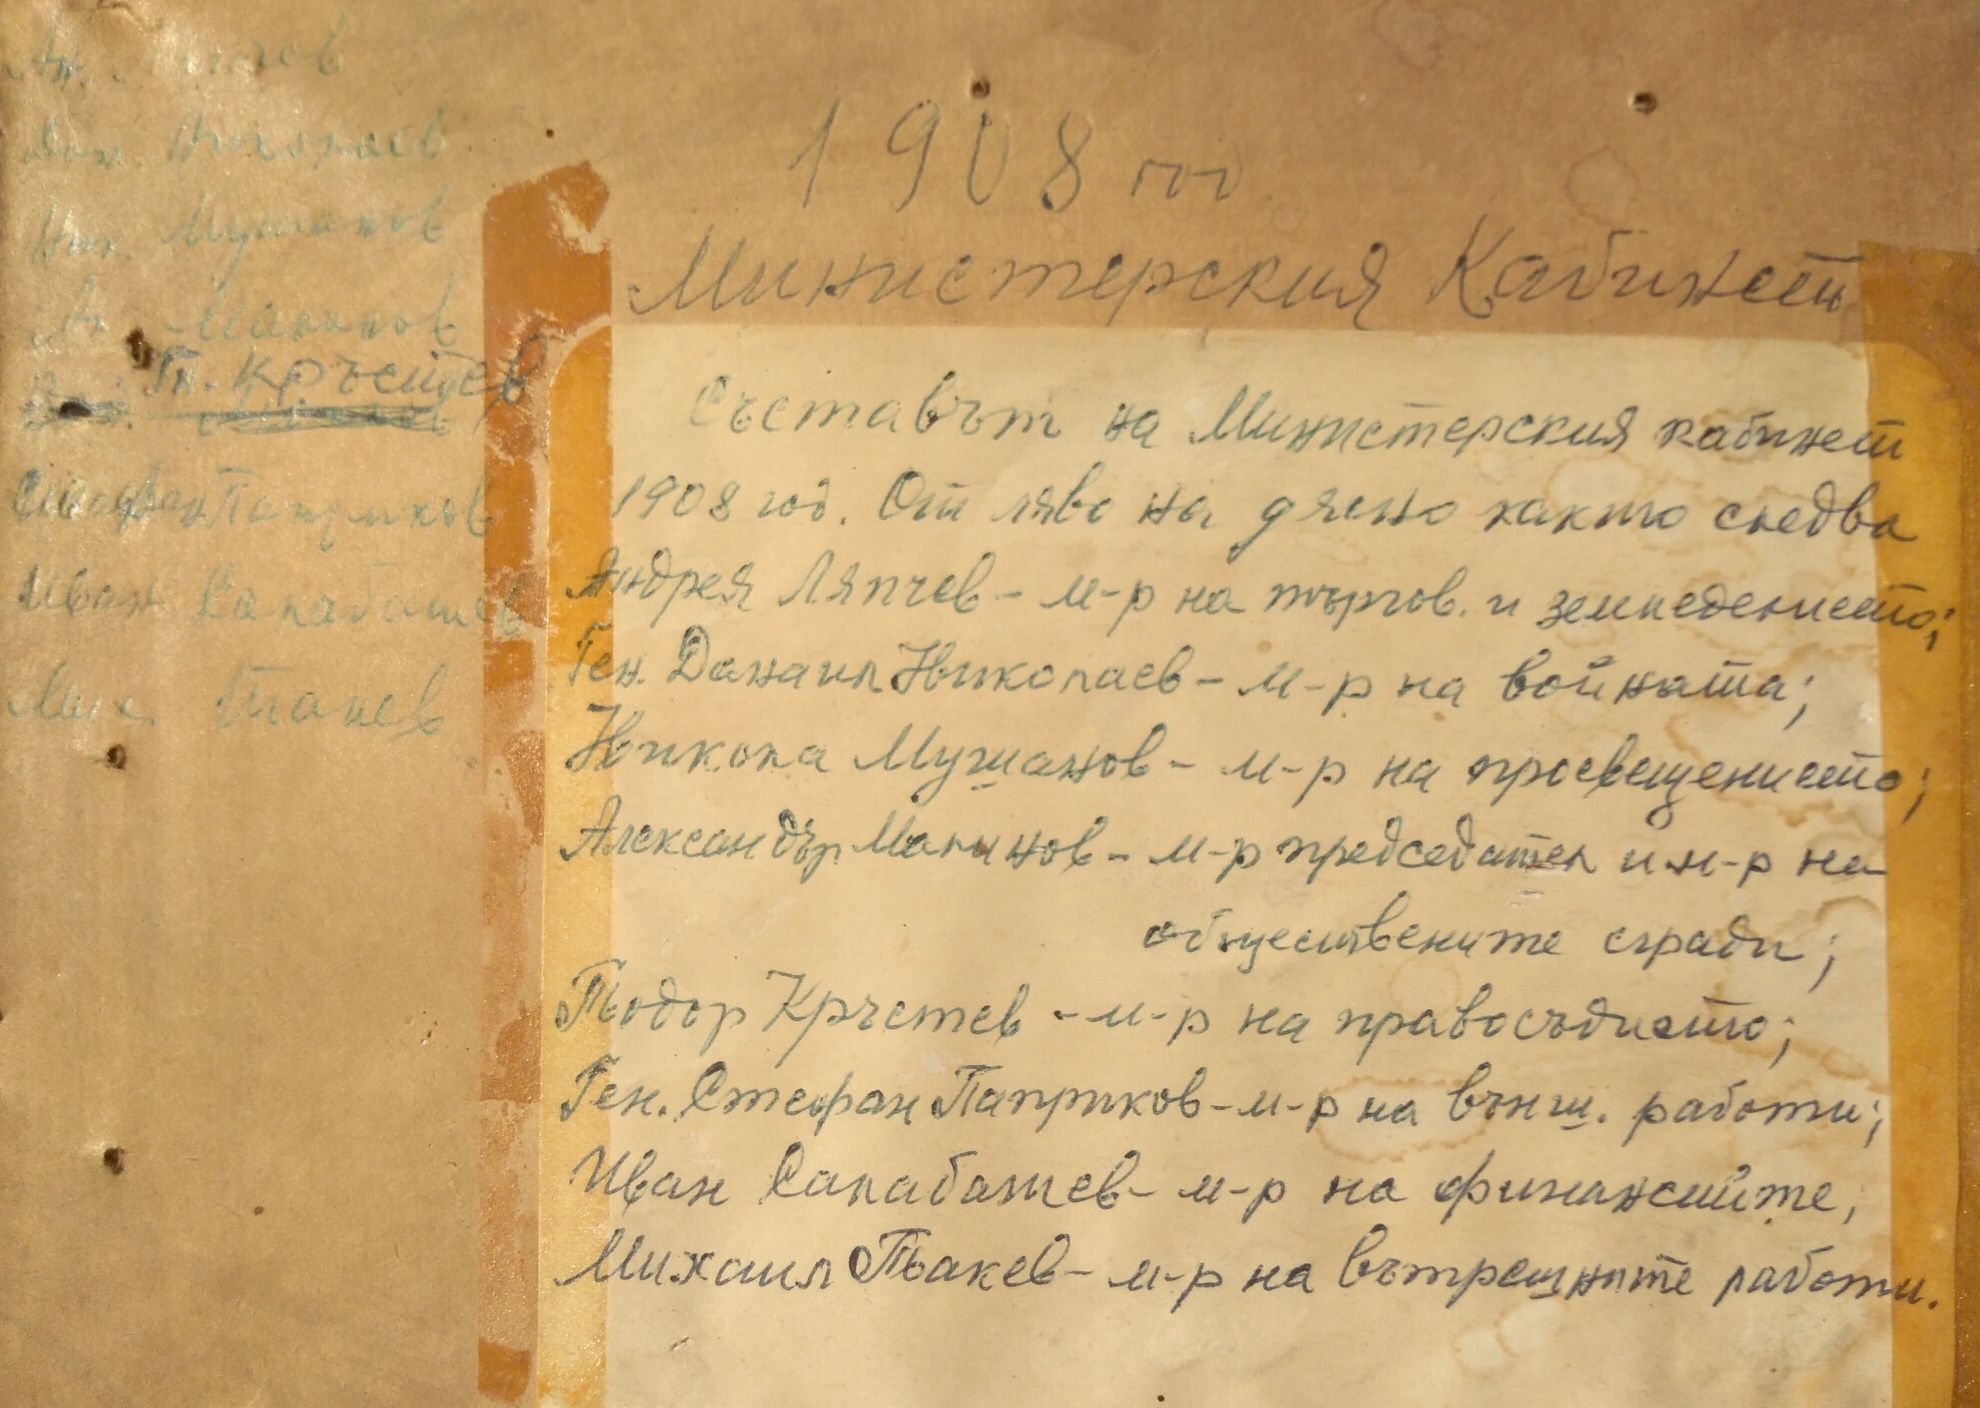 Ан. Ляпчев
Дан. Николаев
Ник. Мушанов
Ал. Малинов
Тд. Кръстев
Стефан Паприков
Иван Салабашев
Мих. Такев
1908 год
Министерския Кабинет
Съставът на Министерския кабинет
1908 год. От ляво на дясно както следва
Андрея Ляпчев - м-р на търгов. и земледелието;
Ген. Данаил Николаев - м-р на войната;
Никола Мушанов - м-р на просвещението;
Александър Малинов - м-р председател и м-р на
обществените сгради;
Тодор Кръстев - м-р на правосъдието;
Ген. Стефан Паприков - м-р на външ. работи;
Иван Салабашев - м-р на финансиите;
Михаил Такев - м-р на вътрешните работи.